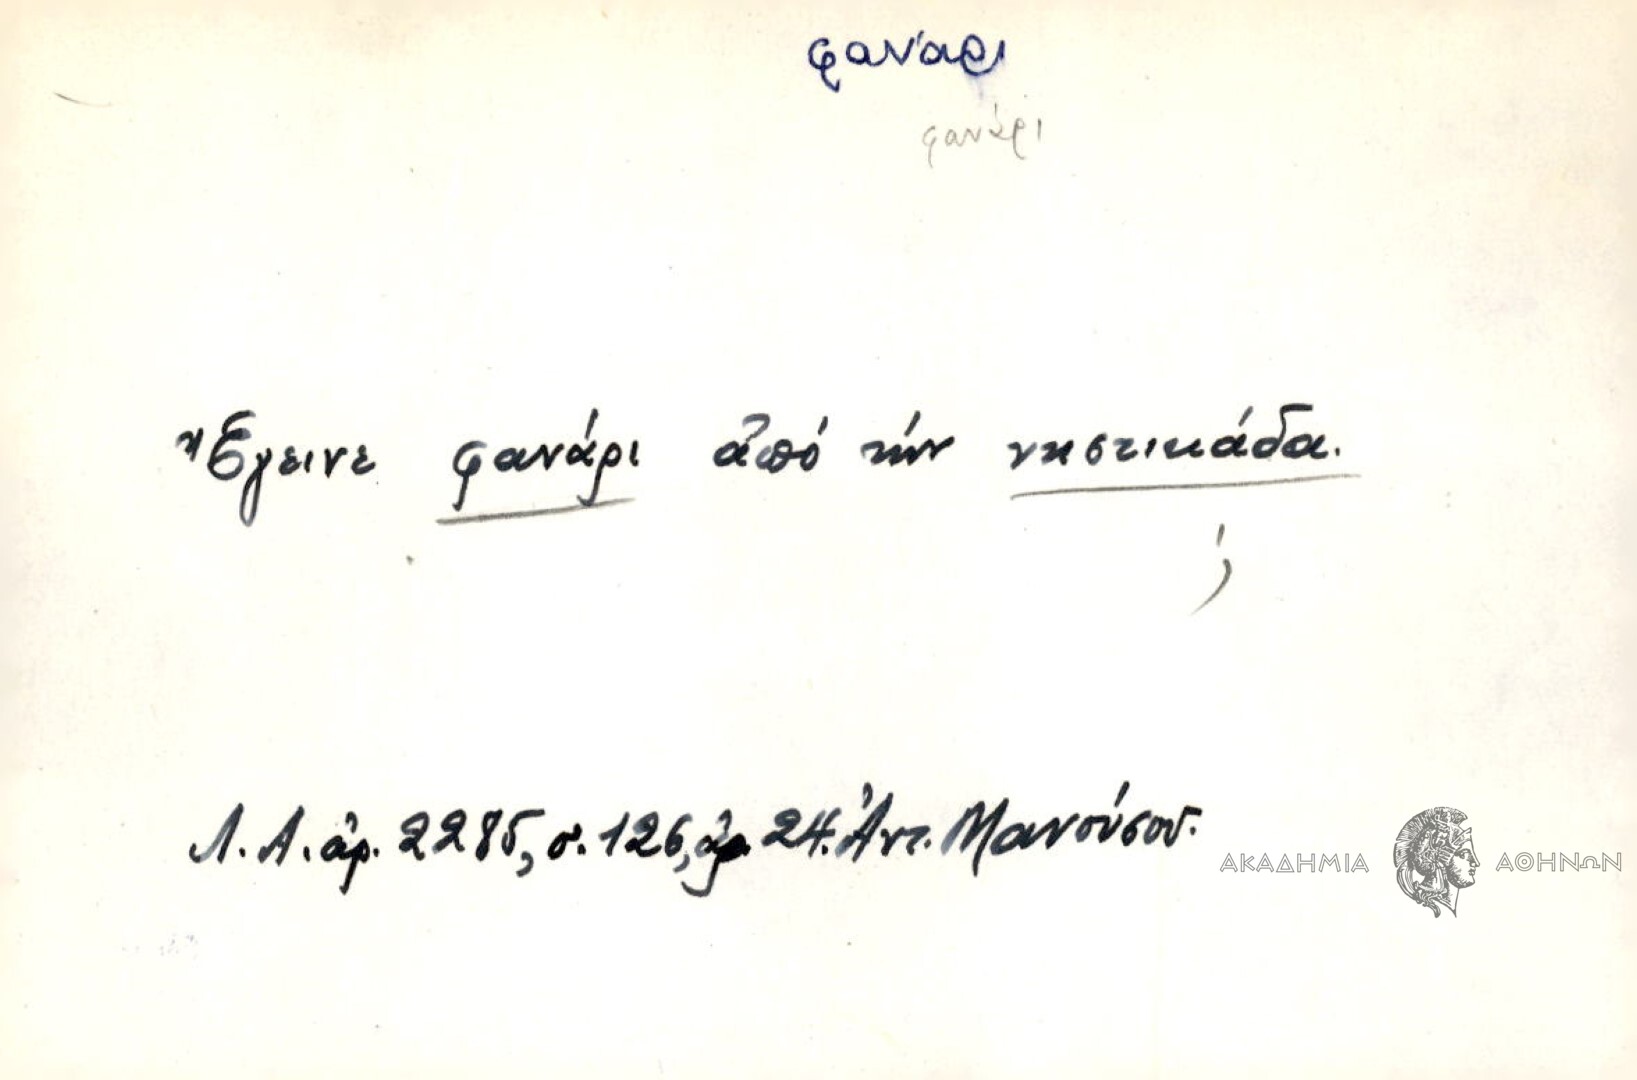 φανάρι
φανάρι
Ἔγεινε φανάρι ἀπό τήν νηστικάδα.
;
Λ.Α. ἀρ. 2285, σ. 126, ἀρ. 24. Ἀντ. Μανούσου.
ΑΚΑΔΗΜΙΑ ΑΘΗΝΩΝ